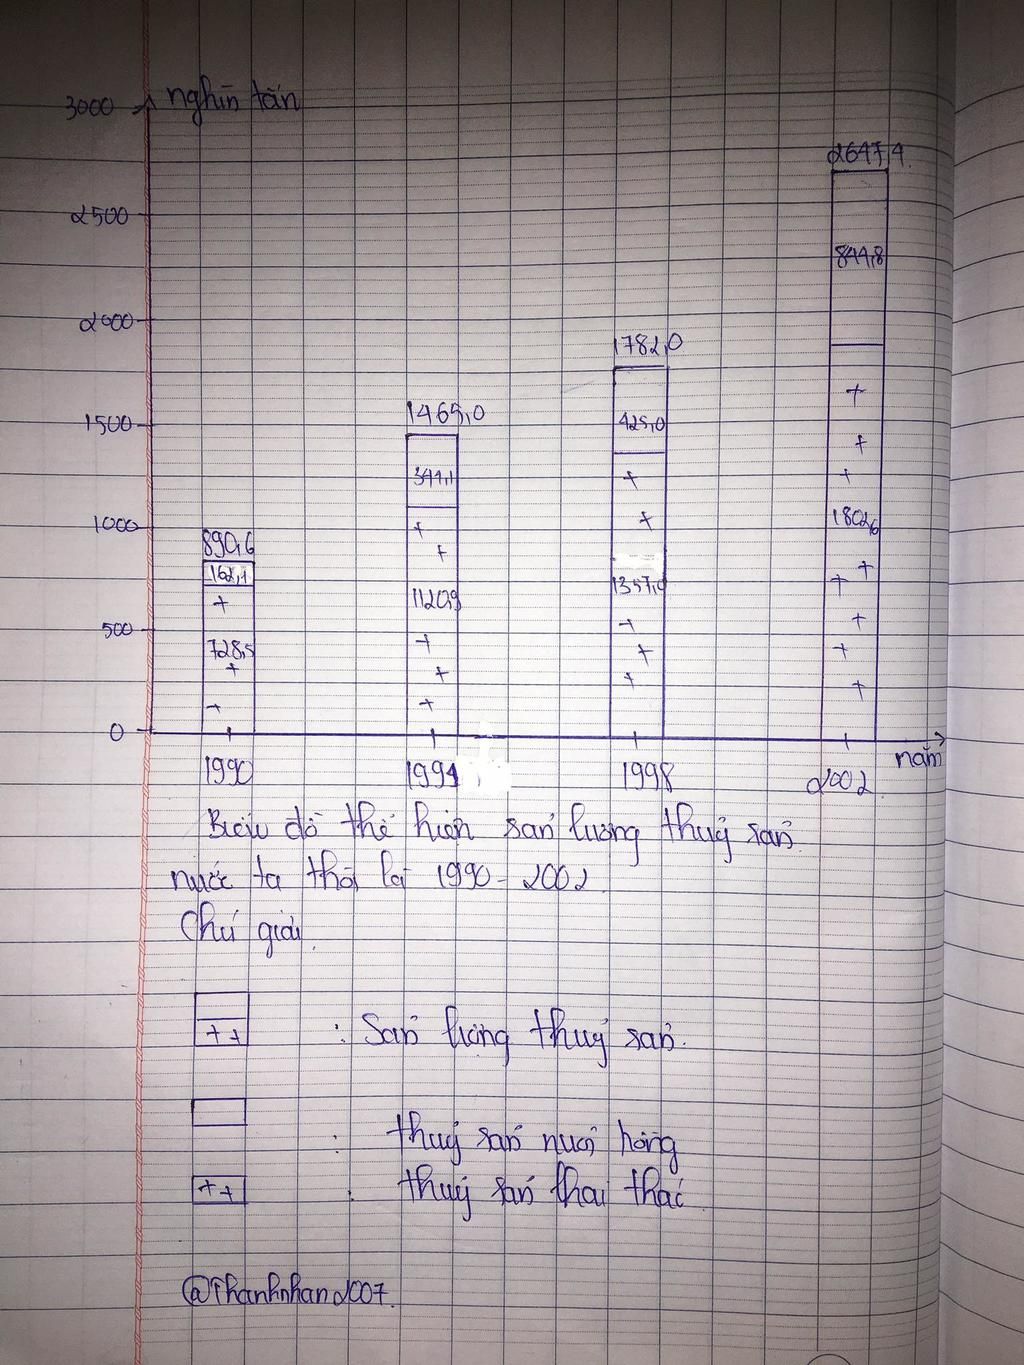 3000 nghìn tấn
2647,4
2500
844,8
2000
1782,0
1500
1465,0
425,0
344,1
1000
1802,6
890,6
162,1
1357,0
1120,9
500
728,5
0
năm
1990 1994 1998 2002
Biểu đồ thể hiện sản lượng thuỷ sản
nước ta thời kì 1990-2002.
Chú giải
: Sản lượng thuỷ sản.
: thuỷ sản nuôi hồng
: thuỷ sản thai thác
@Thanhnhan2007.